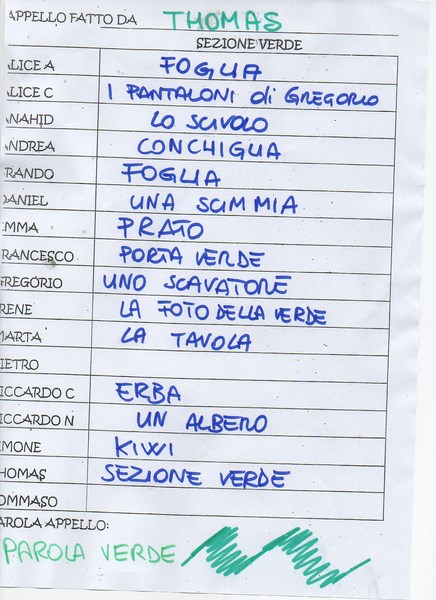 APPELLO FATTO DA THOMAS
SEZIONE VERDE
LICE A FOGLIA
LICE C I PANTALONI di GREGORIO
NAHID LO SCIVOLO
NDREA CONCHIGLIA
RANDO FOGLIA
DANIEL UNA SCIMMIA
MMA PRATO
RANCESCO PORTA VERDE
REGORIO UNO SCAVATORE
RENE LA FOTO DELLA VERDE
MARTA LA TAVOLA
IETRO
ICCARDO C ERBA
ICCARDO N UN ALBERO
IMONE KIWI
HOMAS SEZIONE VERDE
OMMASO
AROLA APPELLO:
PAROLA VERDE